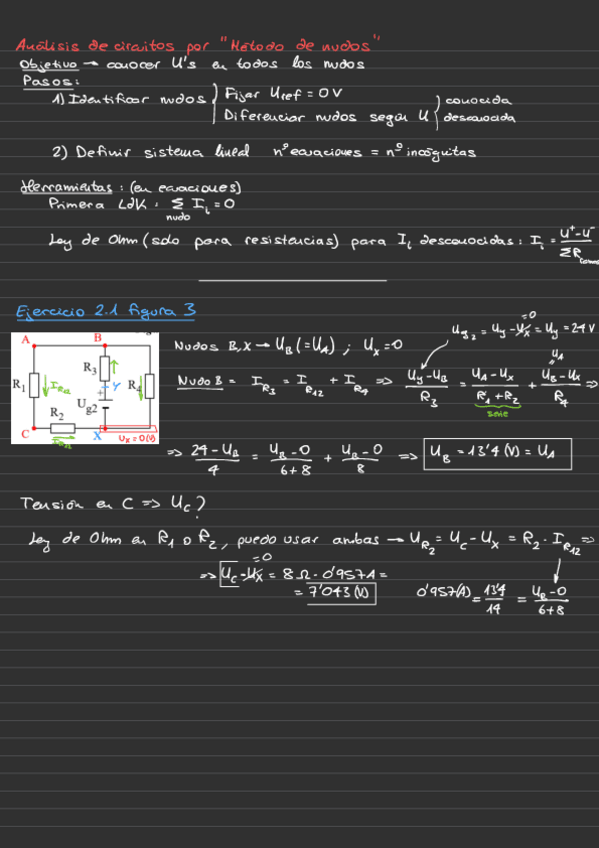 Análisis de circuitos por "Método de nudos"
Objetivo → conocer U's en todos los nudos
Pasos:
1) Identificar nudos { Fijar Uref = 0V
Diferenciar nudos según U { conocida
desconocida
2) Definir sistema lineal nº ecuaciones = nº incógnitas
Herramientas: (en ecuaciones)
Primera LdK: Σ Ii = 0
nudo
Ley de Ohm (solo para resistencias) para Ii desconocidas: Ii = U⁺-U⁻ / ΣR
Ejercicio 2.1 figura 3
Ug2 = Uy - Ux = Uy = 24V
=0
A B
R1 IR12 R3 Y R4
+
Ug2
R2
C X Ux=0(V)
IR12
Nudos B,X → UB (=UA) ; Ux=0
Nudo B = IR3 = IR12 + IR4 => Uy-UB / R3 = UA-Ux / R1+R2 + UB-Ux / R4 =>
UA
serie
=> 24-UB / 4 = UB-0 / 6+8 + UB-0 / 8 => UB = 13'4 (V) = UA
Tensión en C => Uc?
Ley de Ohm en R1 o R2, puedo usar ambas → UR2 = Uc - Ux = R2 · IR12 =>
=0
=> Uc - Ux = 8 Ω · 0'957A =
= 7'043 (V)
0'957(A) = 13'4 / 14 = UB-0 / 6+8